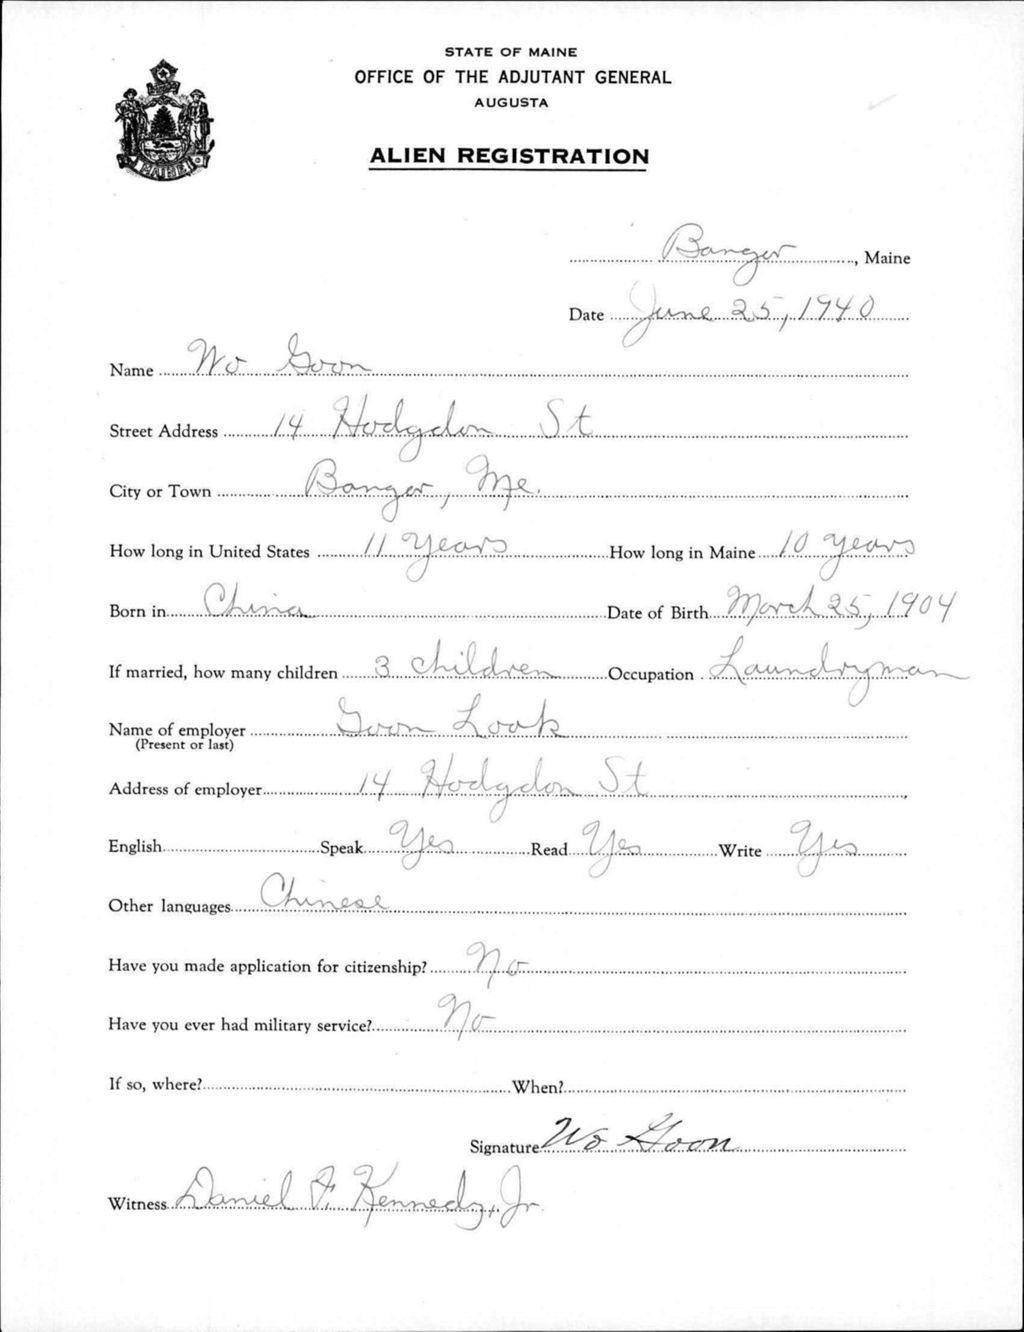 STATE OF MAINE
OFFICE OF THE ADJUTANT GENERAL
AUGUSTA
ALIEN REGISTRATION
MAINE
Bangor, Maine
Date June 25, 1940
Name Wo Goon
Street Address 14 Hodgdon St
City or Town Bangor, Me.
How long in United States 11 Years How long in Maine 10 years
Born in China Date of Birth March 25, 1904
If married, how many children 3 children Occupation Laundryman
Name of employer Goon Look
(Present or last)
Address of employer 14 Hodgdon St
English Speak Yes Read Yes Write Yes
Other languages Chinese
Have you made application for citizenship? No
Have you ever had military service? No
If so, where? When?
Signature Wo Goon
Witness Daniel F. Kennedy, Jr.